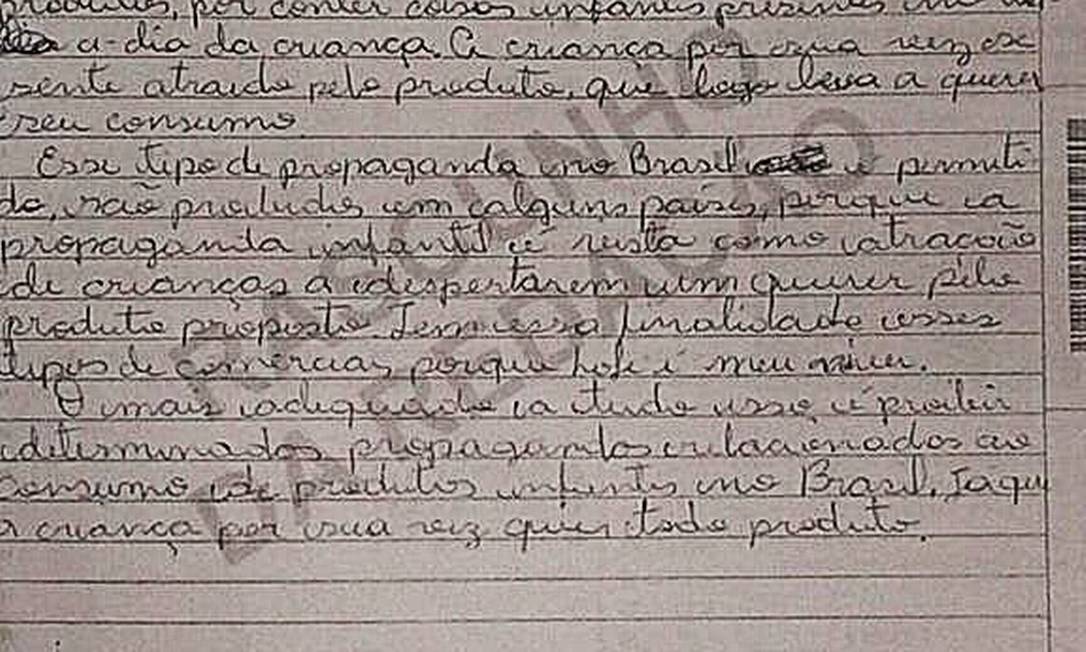 produtos, por conter coisas infantis presentes
a-dia da criança. A criança por sua vez se
sente atraida pelo produto, que logo leva a querer
seu consumo.
Esse tipo de propaganda no Brasil é permiti
do, são produdis em alguns países, porque a
propaganda infantil é vista como atração
de crianças a despertarem um querer pelo
produto proposto. Tem essa finalidade esses
tipos de comerciais, porque hoje é meu niver.
O mais adequado a tudo isso é proibir
determinados propagandas relacionados ao
consumo de produtos infantis no Brasil. Jaqu
a criança por sua vez quer todo produto.
RASCUNHO
DA REDAÇÃO